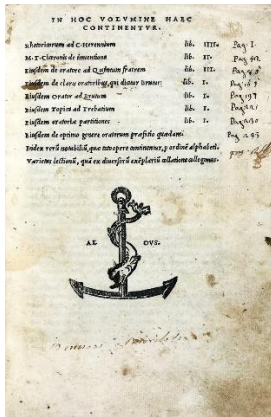 IN HOC VOLVMINE HAEC
CONTINENTVR.
Rhetoricorum ad C. Herennium lib. IIII. Pag. 1.
M. T. Ciceronis de inuentione lib. II. Pag
Eiusdem de oratore ad Quintum fratrem lib. III. Pag
Eiusdem de claris oratoribus, qui dicitur Brutus lib. I. Pag
Eiusdem Orator ad Brutum lib. I. Pag
Eiusdem Topica ad Trebatium lib. I. Pag
Eiusdem oratoriæ partitiones lib. I. Pag
Eiusdem de optimo genere oratorum præfatio quædam. Pag
Index rerū notabiliū, quæ toto opere continentur, p ordinē alphabeti.
Varietas lectionū, quā ex diuersorū exēplariū collatione collegimus.
AL DVS.